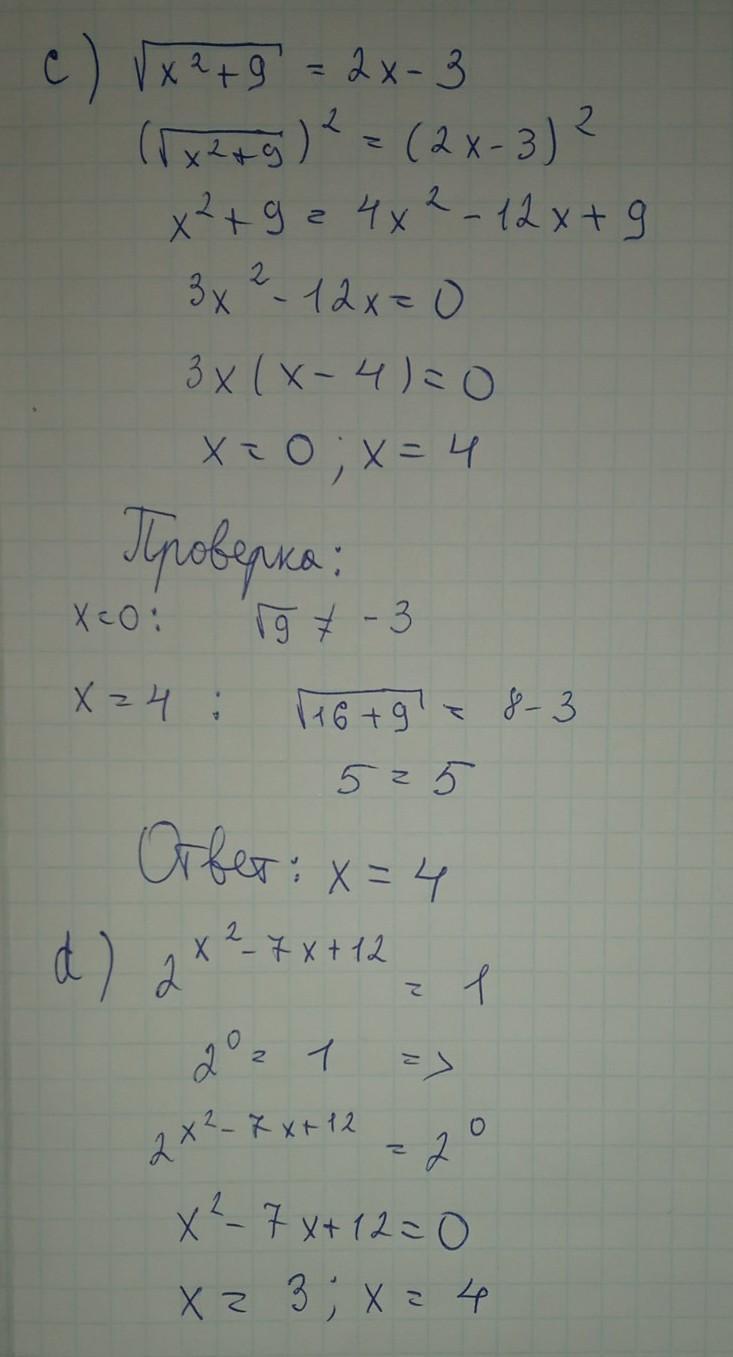 c) √(x²+9) = 2x-3
(√(x²+9))² = (2x-3)²
x²+9 = 4x²-12x+9
3x²-12x=0
3x(x-4)=0
x=0; x=4
Проверка:
x=0: √9 ≠ -3
x=4: √(16+9) = 8-3
5=5
Ответ: x=4
d) 2^(x²-7x+12) = 1
2⁰ = 1 =>
2^(x²-7x+12) = 2⁰
x²-7x+12=0
x=3; x=4